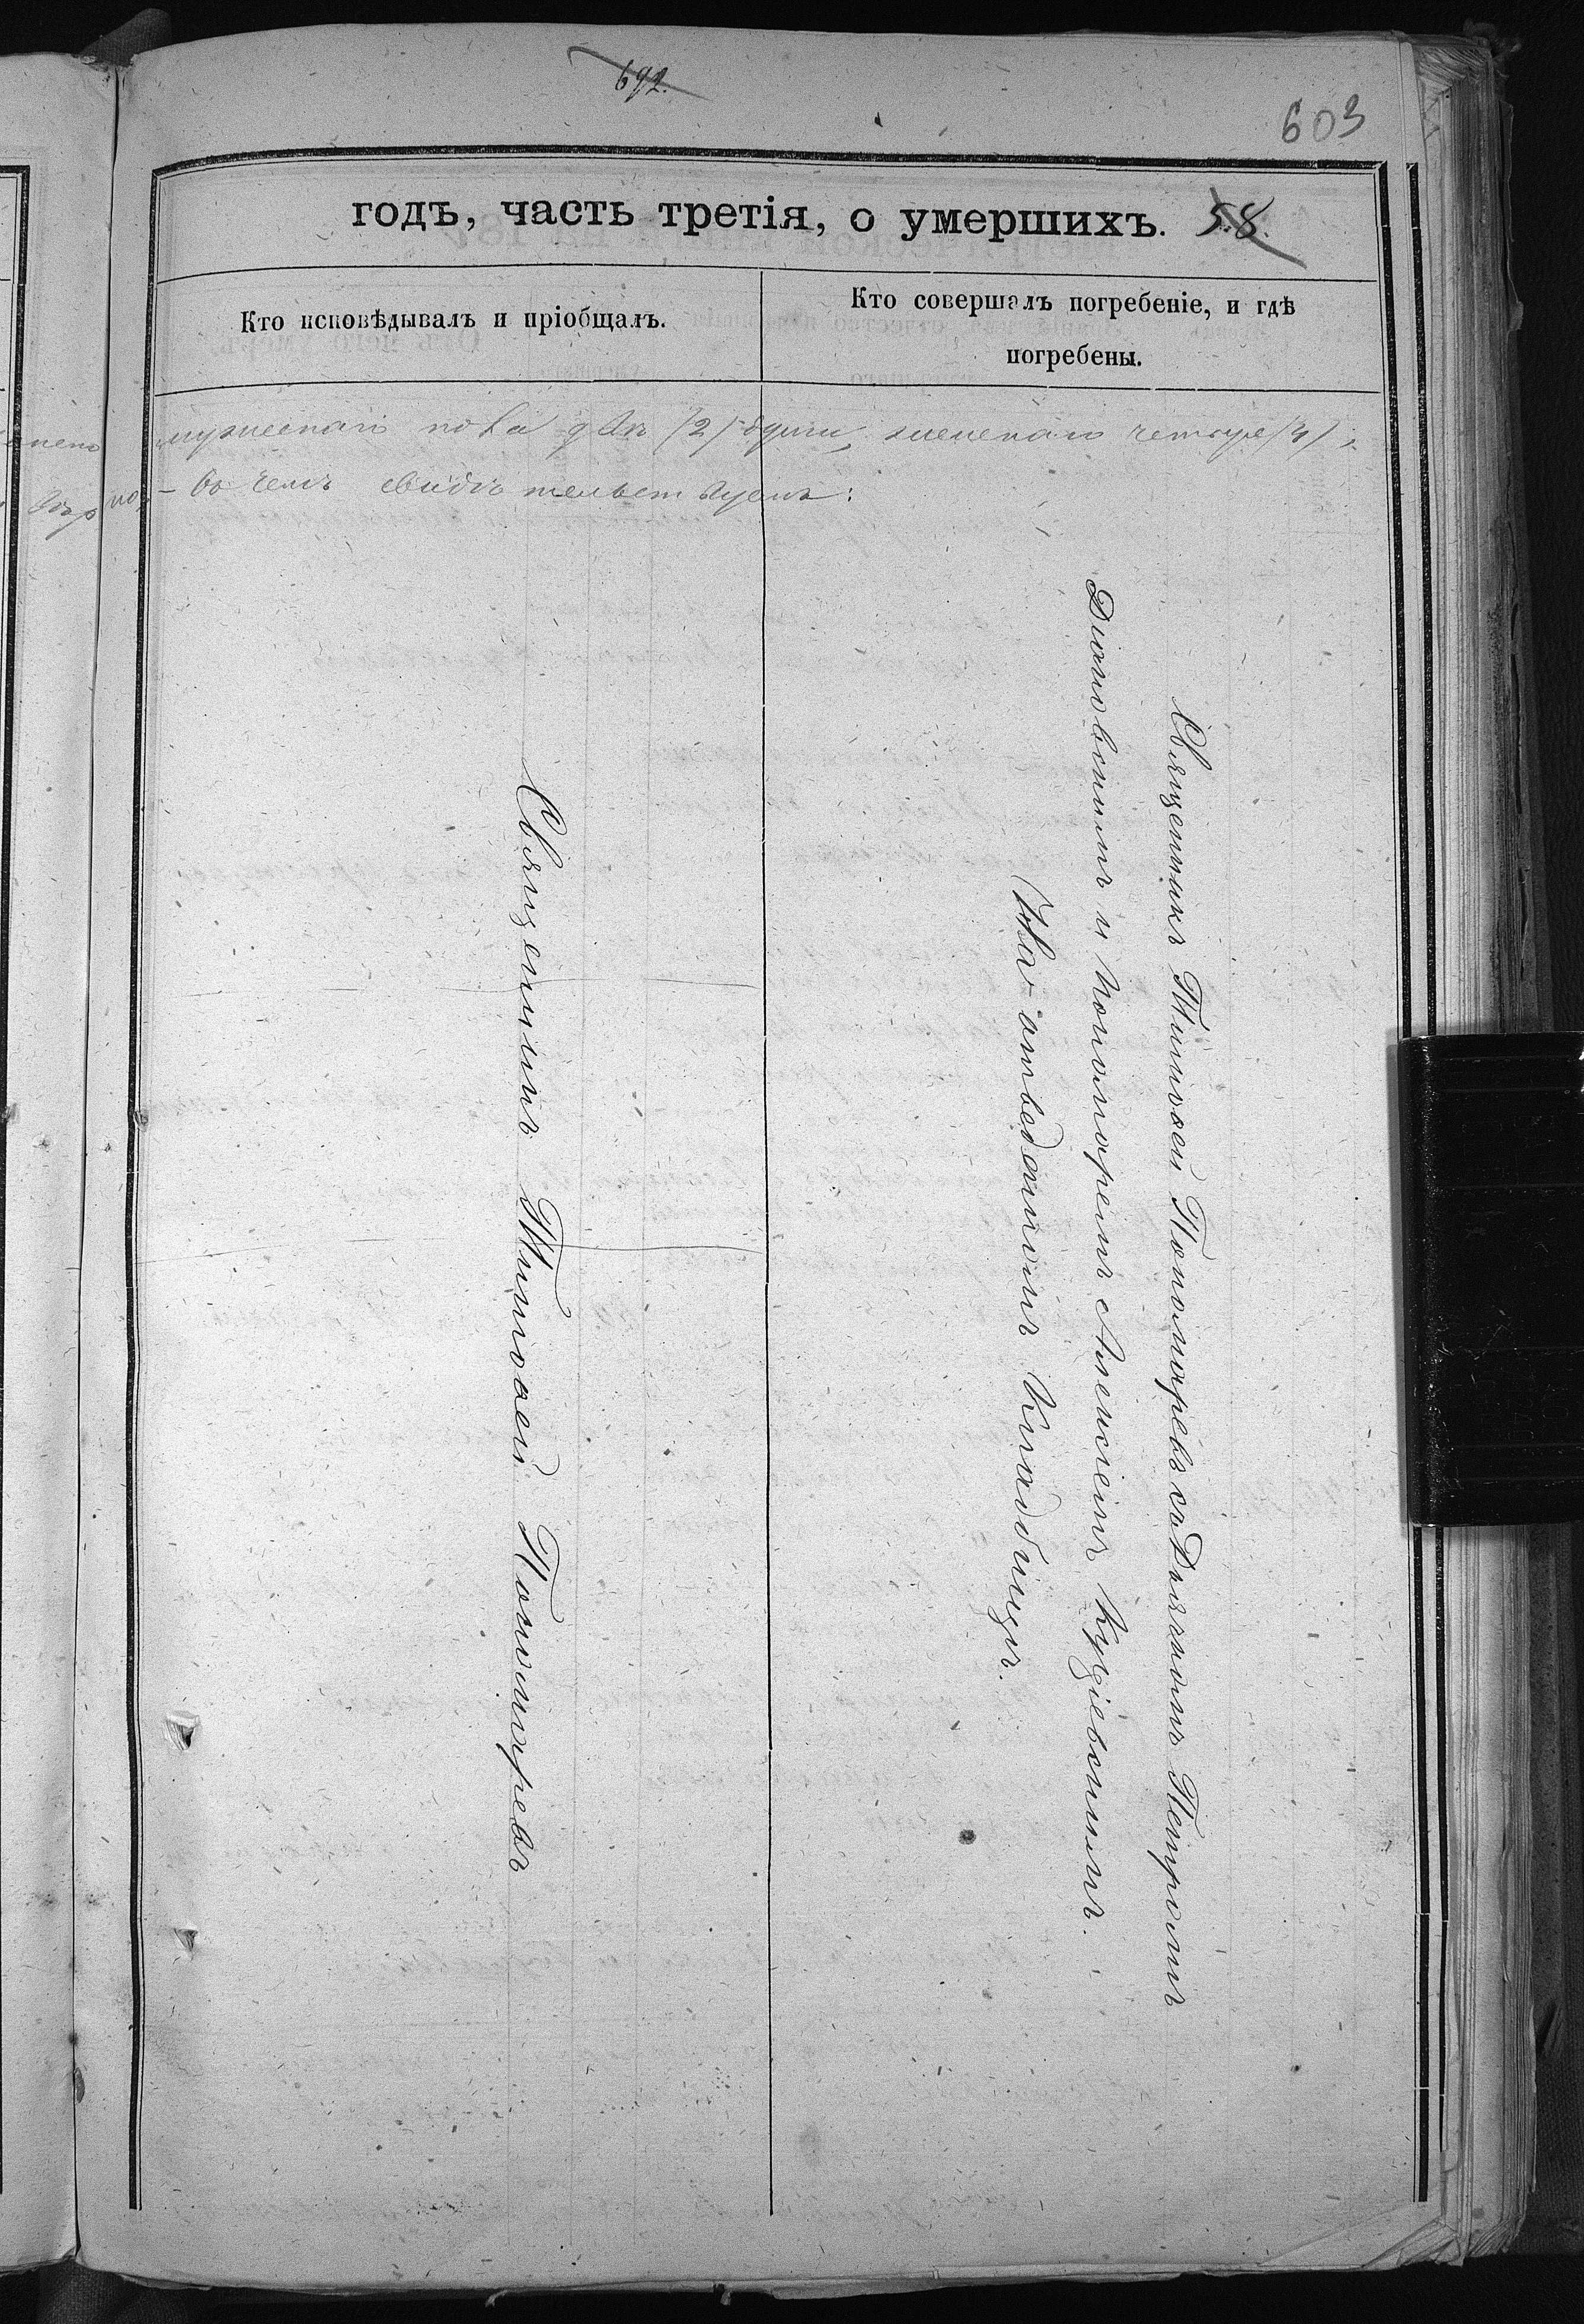 692.
603
годъ, часть третія, о умершихъ. 58.
Кто исповѣдывалъ и пріобщалъ.
Кто совершалъ погребеніе, и гдѣ
погребены.
мужескаго пола двѣ (2) души, женскаго четыре (4),
въ чемъ свидѣтельствуемъ:
Священникъ Тимоѳей Пономаревъ
Священникъ Тимоѳей Пономаревъ съ Дьячкомъ Петромъ
и Пономаремъ Алексіемъ
На отведенномъ Кладбищѣ.